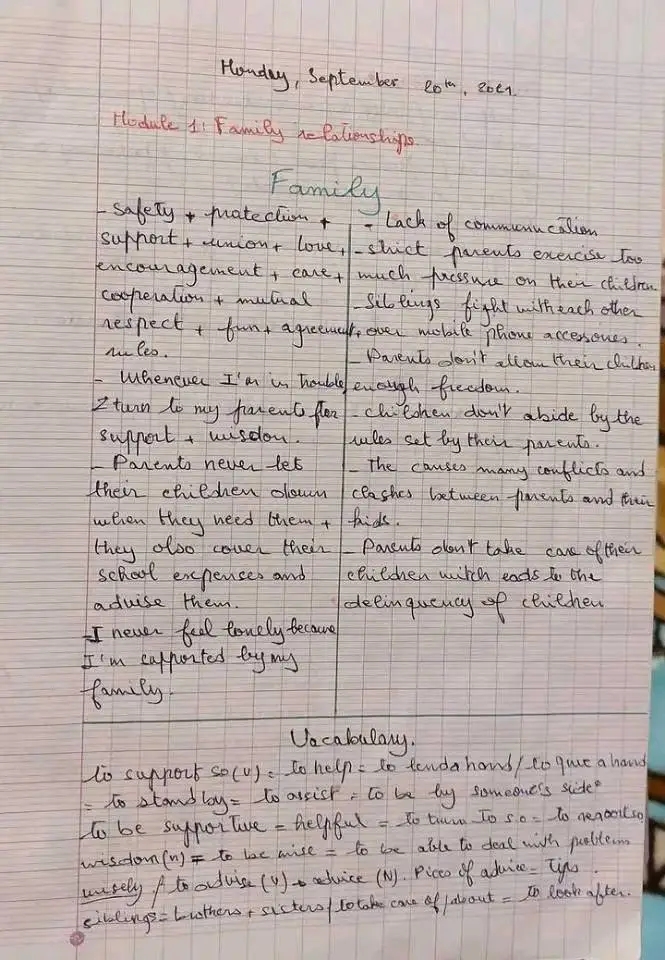 Monday, September 20th, 2021.
Module 1: Family relationships.
Family
- Safety + protection +
support + union + love +
encouragement + care +
cooperation + mutual
respect + fun + agreement +
rules.
- Whenever I'm in trouble
I turn to my parents for
support + wisdom.
- Parents never let
their children down
when they need them +
they also cover their
school expenses and
advise them.
- I never feel lonely because
I'm supported by my
family.
- Lack of communication
- strict parents exercise too
much pressure on their children.
- Siblings fight with each other
over mobile phone accessories.
- Parents don't allow their children
enough freedom.
- children don't abide by the
rules set by their parents.
- The causes many conflicts and
clashes between parents and their
kids.
- Parents don't take care of their
children witch eads to the
delinquency of children
Vocabulary.
to support so (v) = to help = to lend a hand / to give a hand
= to stand by = to assist = to be by someone's side
to be supportive = helpful = to turn to s.o = to resort so
wisdom (n) = to be wise = to be able to deal with problems
wisely / to advise (v) → advice (N). Pices of advice = Tips.
siblings = brothers + sisters / to take care of / about = to look after.